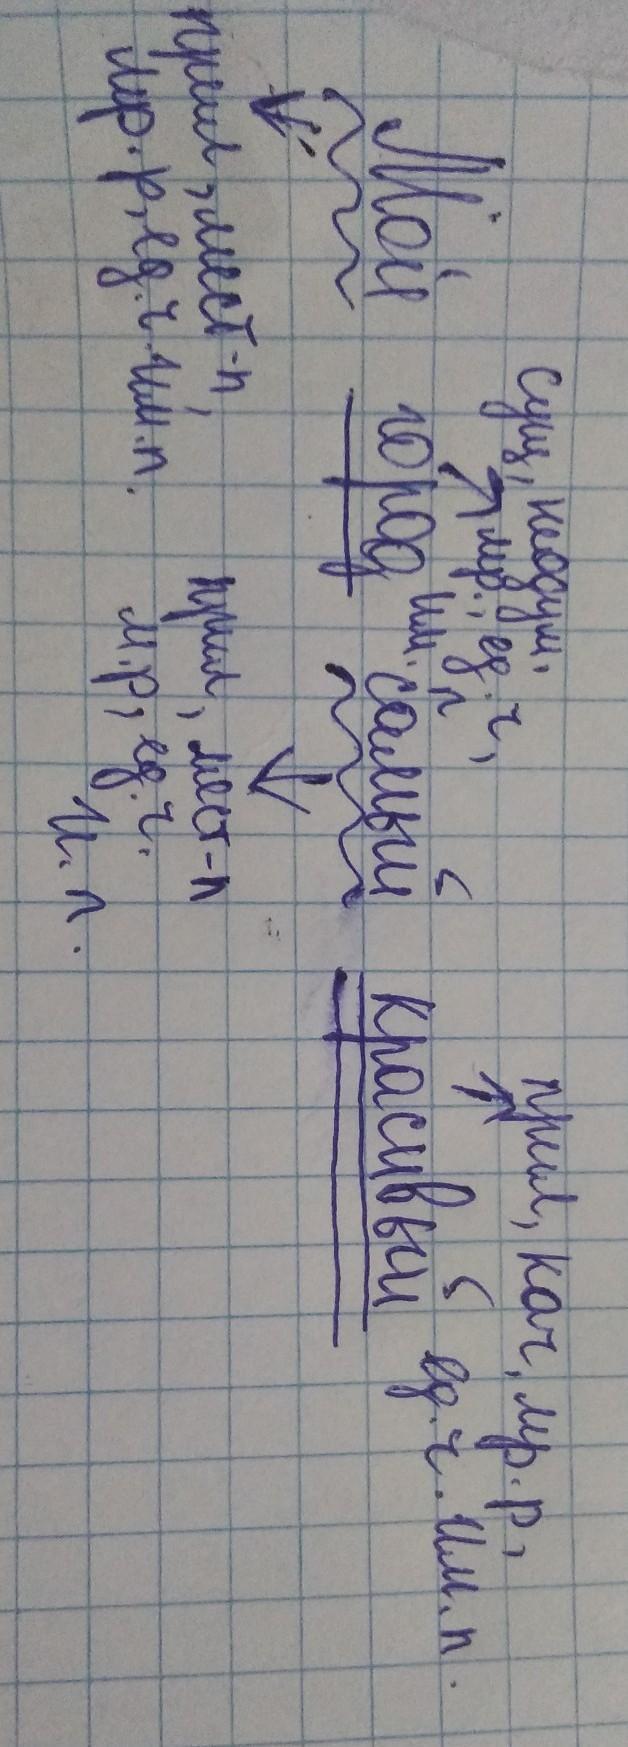 сущ, неодуш.
мр., ед. ч,
им. п
прил, кач, мр. р,
ед. ч. им. п.
Мой город самый красивый
прил, мест-п,
мр. р, ед. ч. им. п.
прил, мест-п
м. р, ед. ч.
И. п.